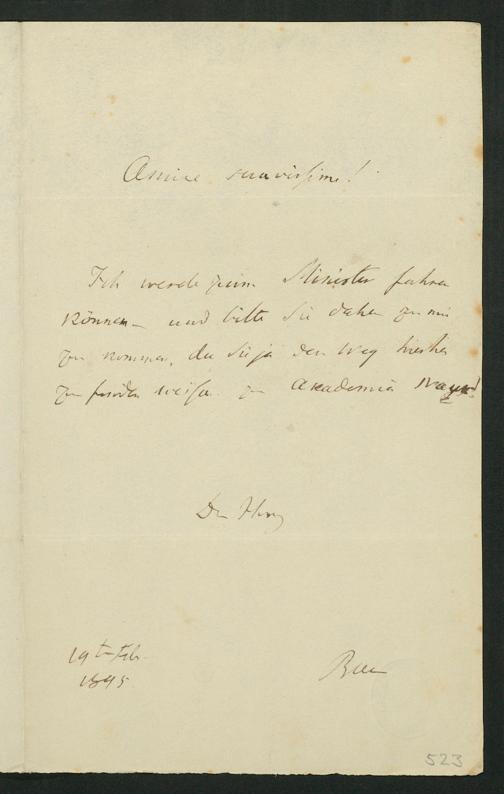 Amice suavissime!
Ich werde zum Minister fahren
können und bitte Sie daher zu mir
zu kommen, da Sie ja den Weg hierher
zu finden
Der Ihrige
19ten Feb.
1845
Baer
523